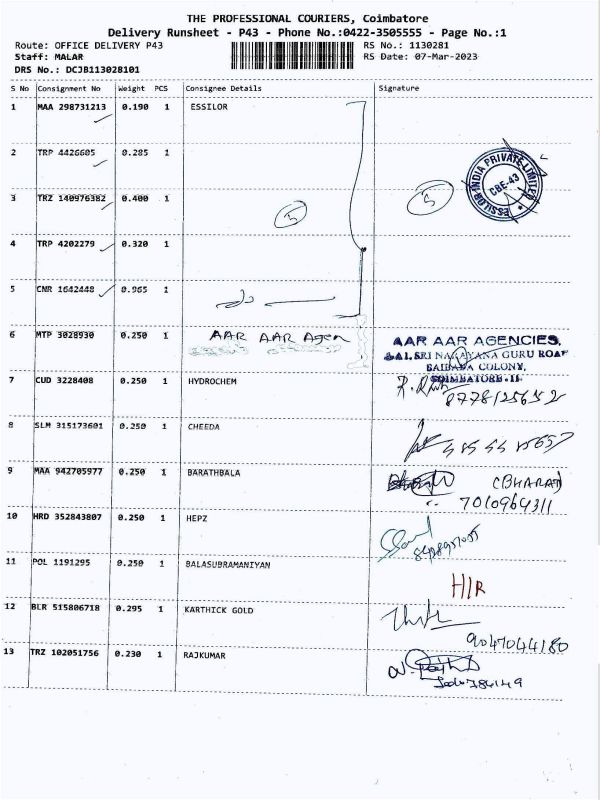 THE PROFESSIONAL COURIERS, Coimbatore
Delivery Runsheet - P43 - Phone No.:0422-3505555 - Page No.:1
Route: OFFICE DELIVERY P43 RS No.: 1130281
Staff: MALAR RS Date: 07-Mar-2023
DRS No.: DCJB113028101
S No Consignment No Weight PCS Consignee Details Signature
1 MAA 298731213 0.190 1 ESSILOR
2 TRP 4426605 0.285 1
ESSILOR INDIA PRIVATE LIMITED
CBE-43
3 TRZ 140976382 0.400 1
5 5
4 TRP 4202279 0.320 1
5 CNR 1642448 0.965 1
6 MTP 3028930 0.250 1 AAR AAR Agen AAR AAR AGENCIES,
SRI NARAYANA GURU ROAD
SAIBABA COLONY,
COIMBATORE-11
7 CUD 3228408 0.250 1 HYDROCHEM
8778125652
8 SLM 315173601 0.250 1 CHEEDA
9 MAA 942705977 0.250 1 BARATHBALA (BHARAT)
7010964311
10 HRD 352843807 0.250 1 HEPZ
11 POL 1191295 0.250 1 BALASUBRAMANIYAN
H/R
12 BLR 515806718 0.295 1 KARTHICK GOLD
9047044180
13 TRZ 102051756 0.230 1 RAJKUMAR